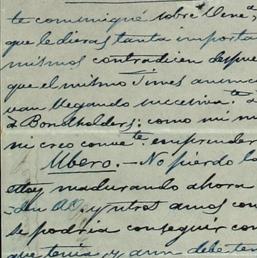 te comuniqué sobre Vene
que le dieras tanta importa
mismos contradicen despue
que el mismo Times anunci
van llegando sucesiva.te
Bondholders; como mi
ni creo conve.te emprender
Ubero.—No pierdo la
estoy madurando ahora
y otros amos con
se podria conseguir con
que tenia, y aun debe ten